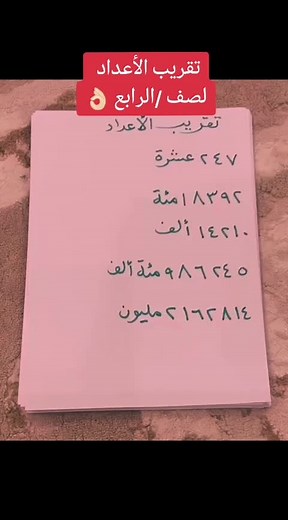 تقريب الأعداد
لصف /الرابع 👌🏻
تقريب الأعداد
٢٤٧ عشرة
١٨٣٩٢ مئة
١٤٢١٠ ألف
٩٨٦٢٤٥ مئة ألف
٢١٦٢٨١٤ مليون